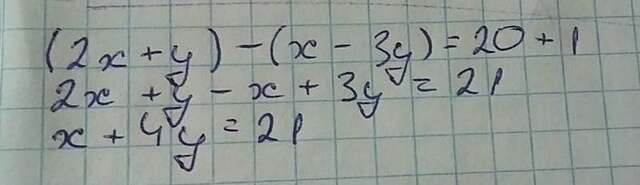 (2x + y) - (x - 3y) = 20 + 1
2x + y - x + 3y = 21
x + 4y = 21